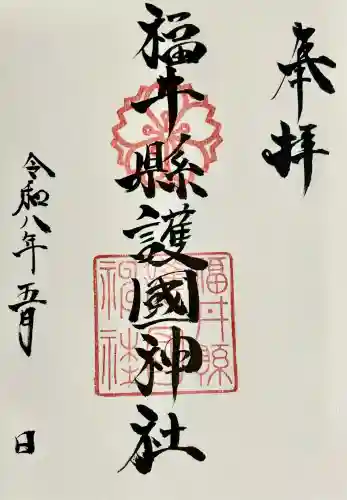 奉拝
福井縣護國神社
令和八年五月
日
福井縣
護國
神社